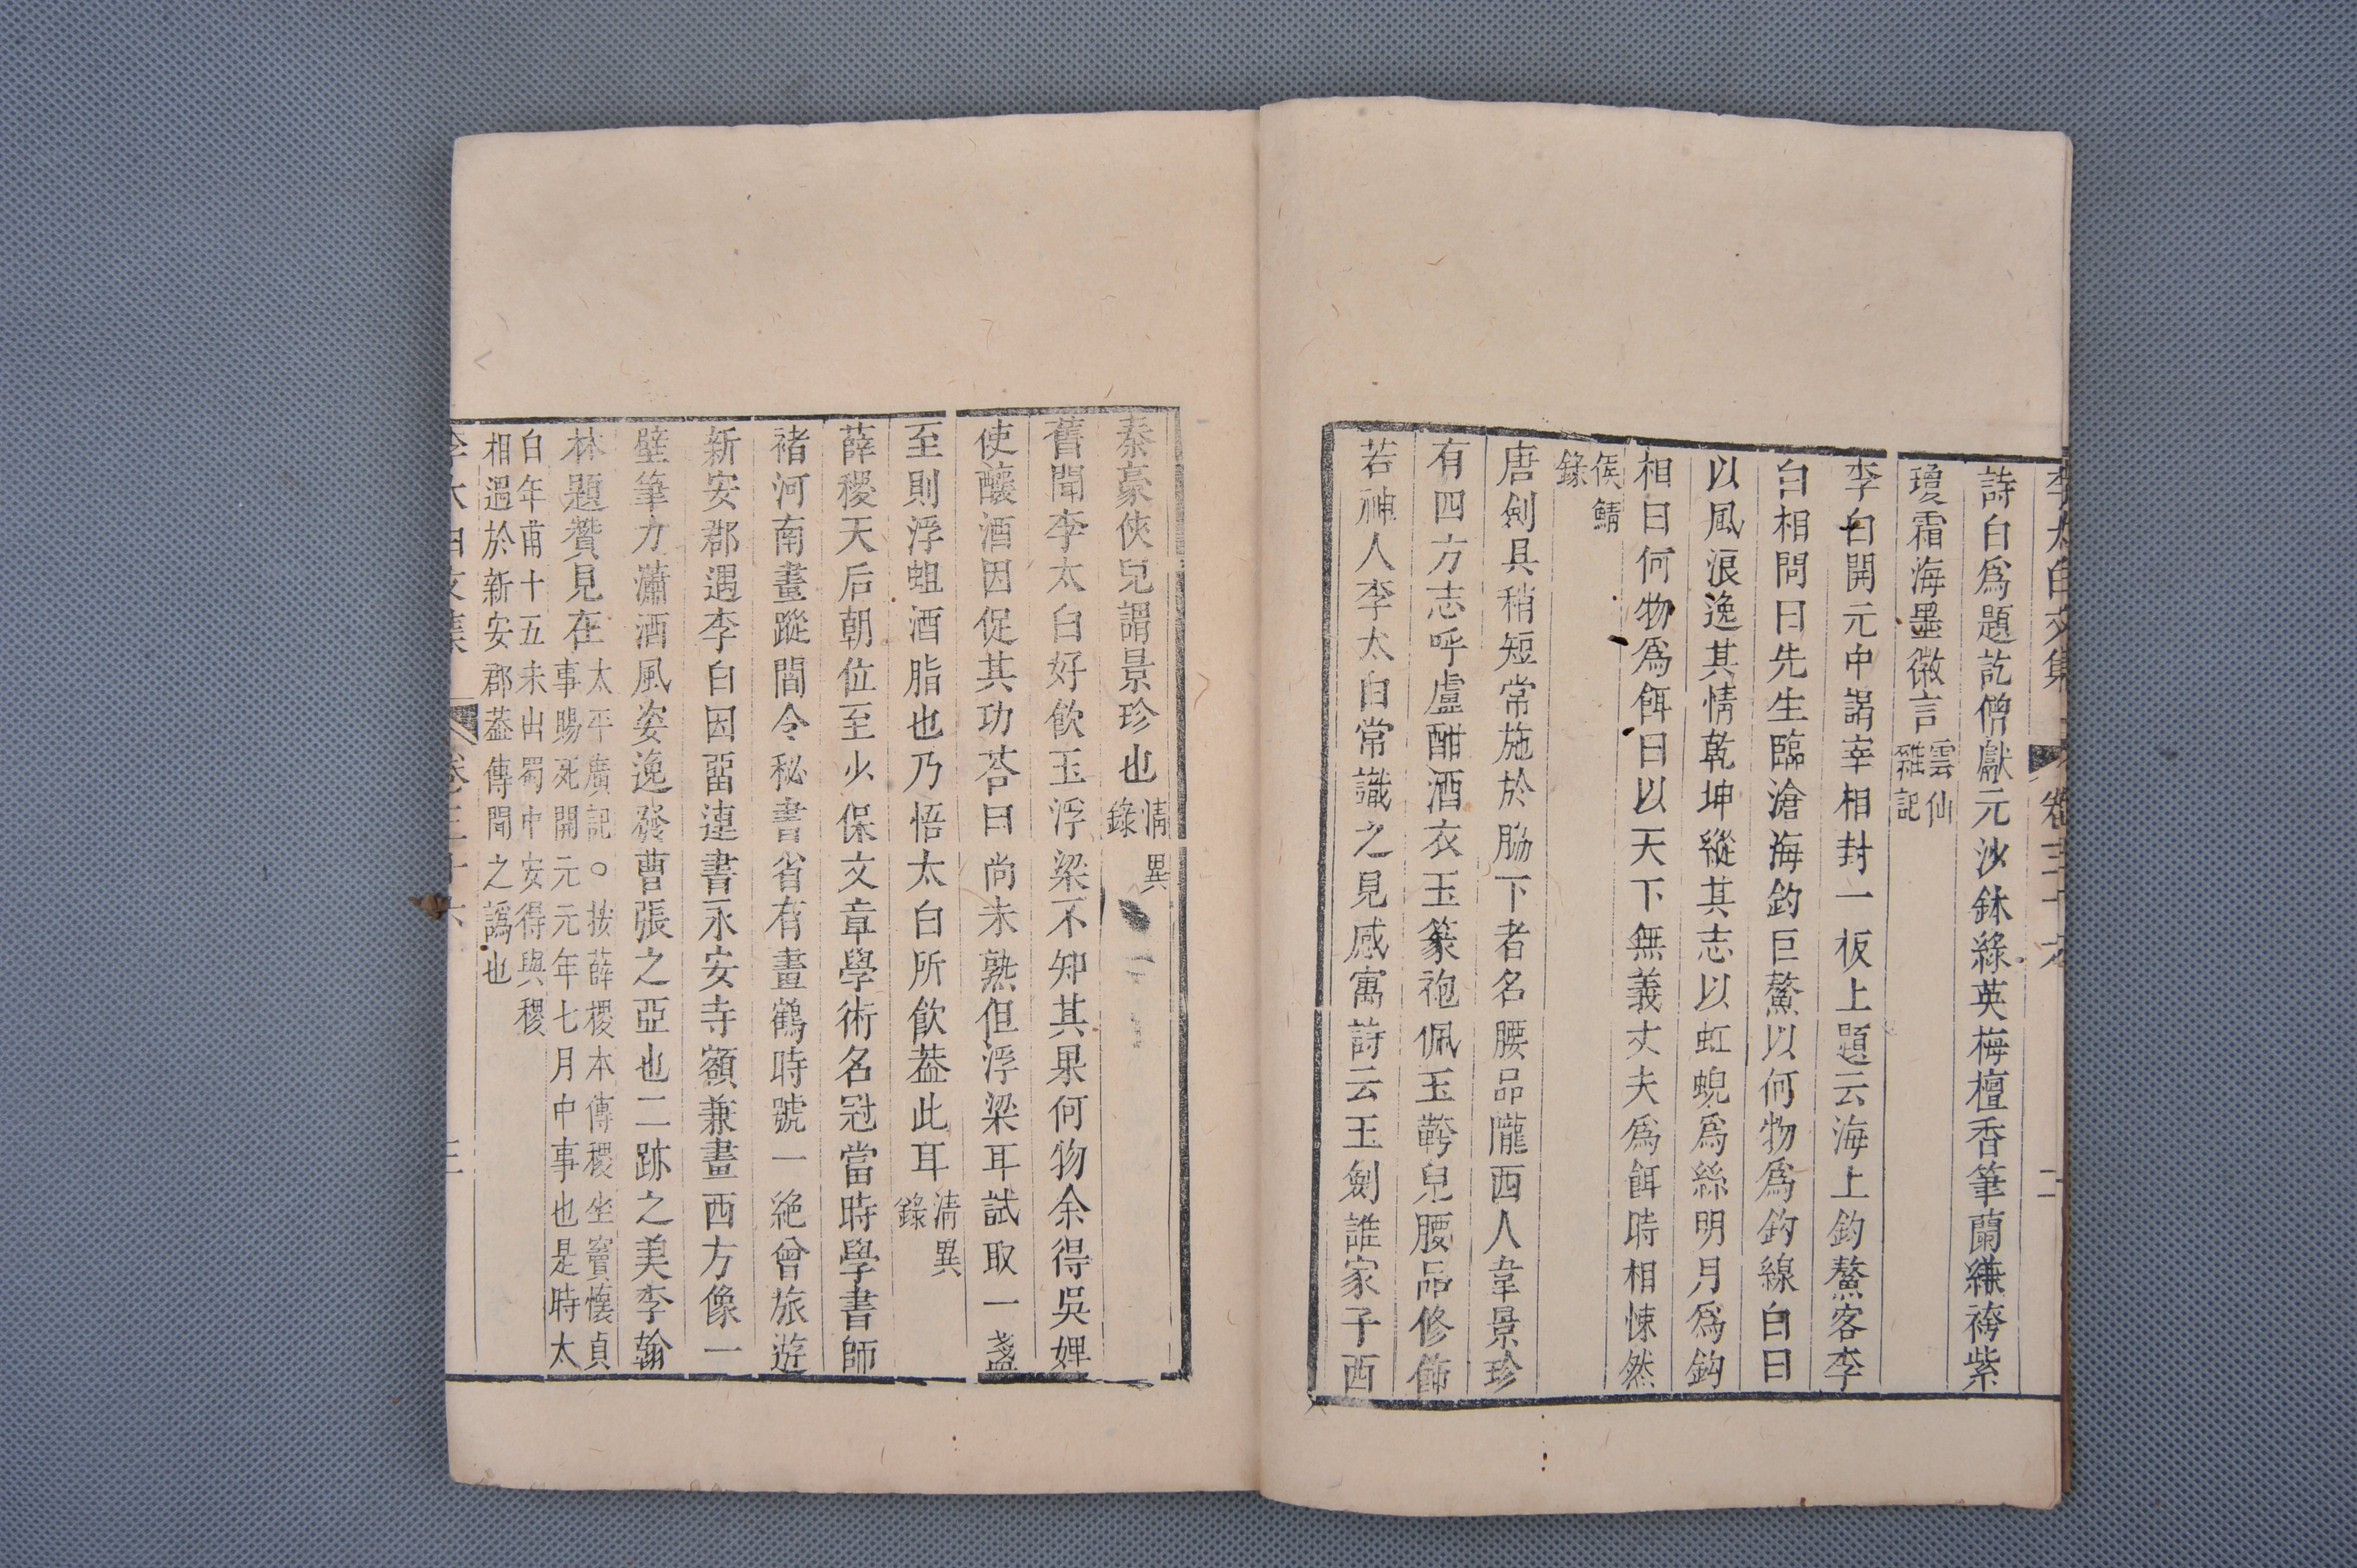 李太白文集 卷三十六
詩白爲題訖僧獻元沙鉢綠英梅檀香筆蘭縑袴紫
瓊霜海墨微言雲仙雜記
李白開元中謁宰相封一板上題云海上釣鰲客李
白相問曰先生臨滄海釣巨鰲以何物爲鈎線白曰
以風浪逸其情乾坤縱其志以虹蜺爲絲明月爲鈎
相曰何物爲餌曰以天下無義丈夫爲餌時相悚然
侯鯖錄
唐劍具稍短常施於脇下者名腰品隴西人韋景珍
有四方志呼盧酣酒衣玉篆袍佩玉鞞兒腰品修飾
若神人李太白常識之見感寓詩云玉劍誰家子西
秦豪俠兒謂景珍也清異錄
舊聞李太白好飲玉浮梁不知其果何物余得吳婢
使釀酒因促其功荅曰尚未熟但浮梁耳試取一盞
至則浮蛆酒脂也乃悟太白所飲葢此耳清異錄
薛稷天后朝位至少保文章學術名冠當時學書師
褚河南畫蹤閻令秘書省有畫鶴時號一絶曾旅遊
新安郡遇李白因留連書永安寺額兼畫西方像一
壁筆力瀟洒風姿逸發曹張之亞也二跡之美李翰
林題贊見在太平廣記○按薛稷本傳稷坐竇懷貞
事賜死開元元年七月中事也是時太
白年甫十五未出蜀中安得與稷
相遇於新安郡葢傳聞之譌也
李太白文集 卷三十六